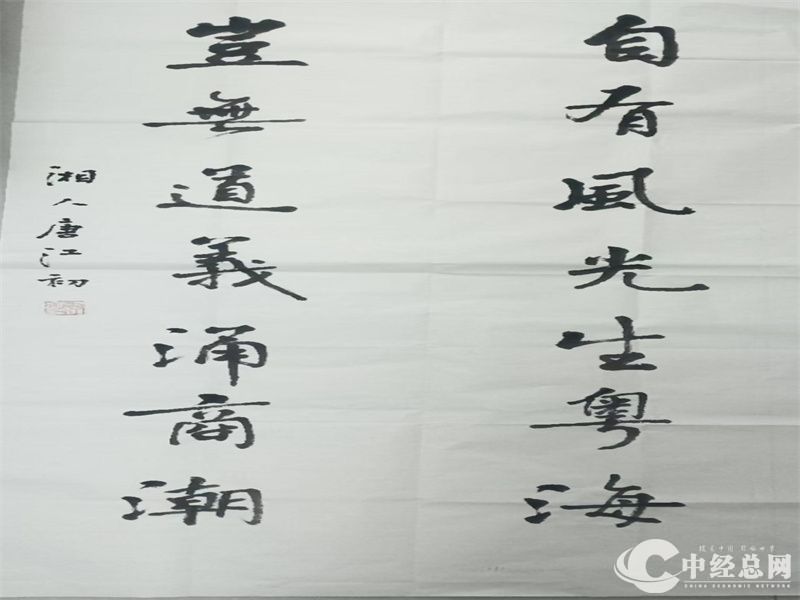 自有風光生粵海
豈無道義涌商潮
湘人唐江初
中经总网
CHINA ECONOMIC NETWORK